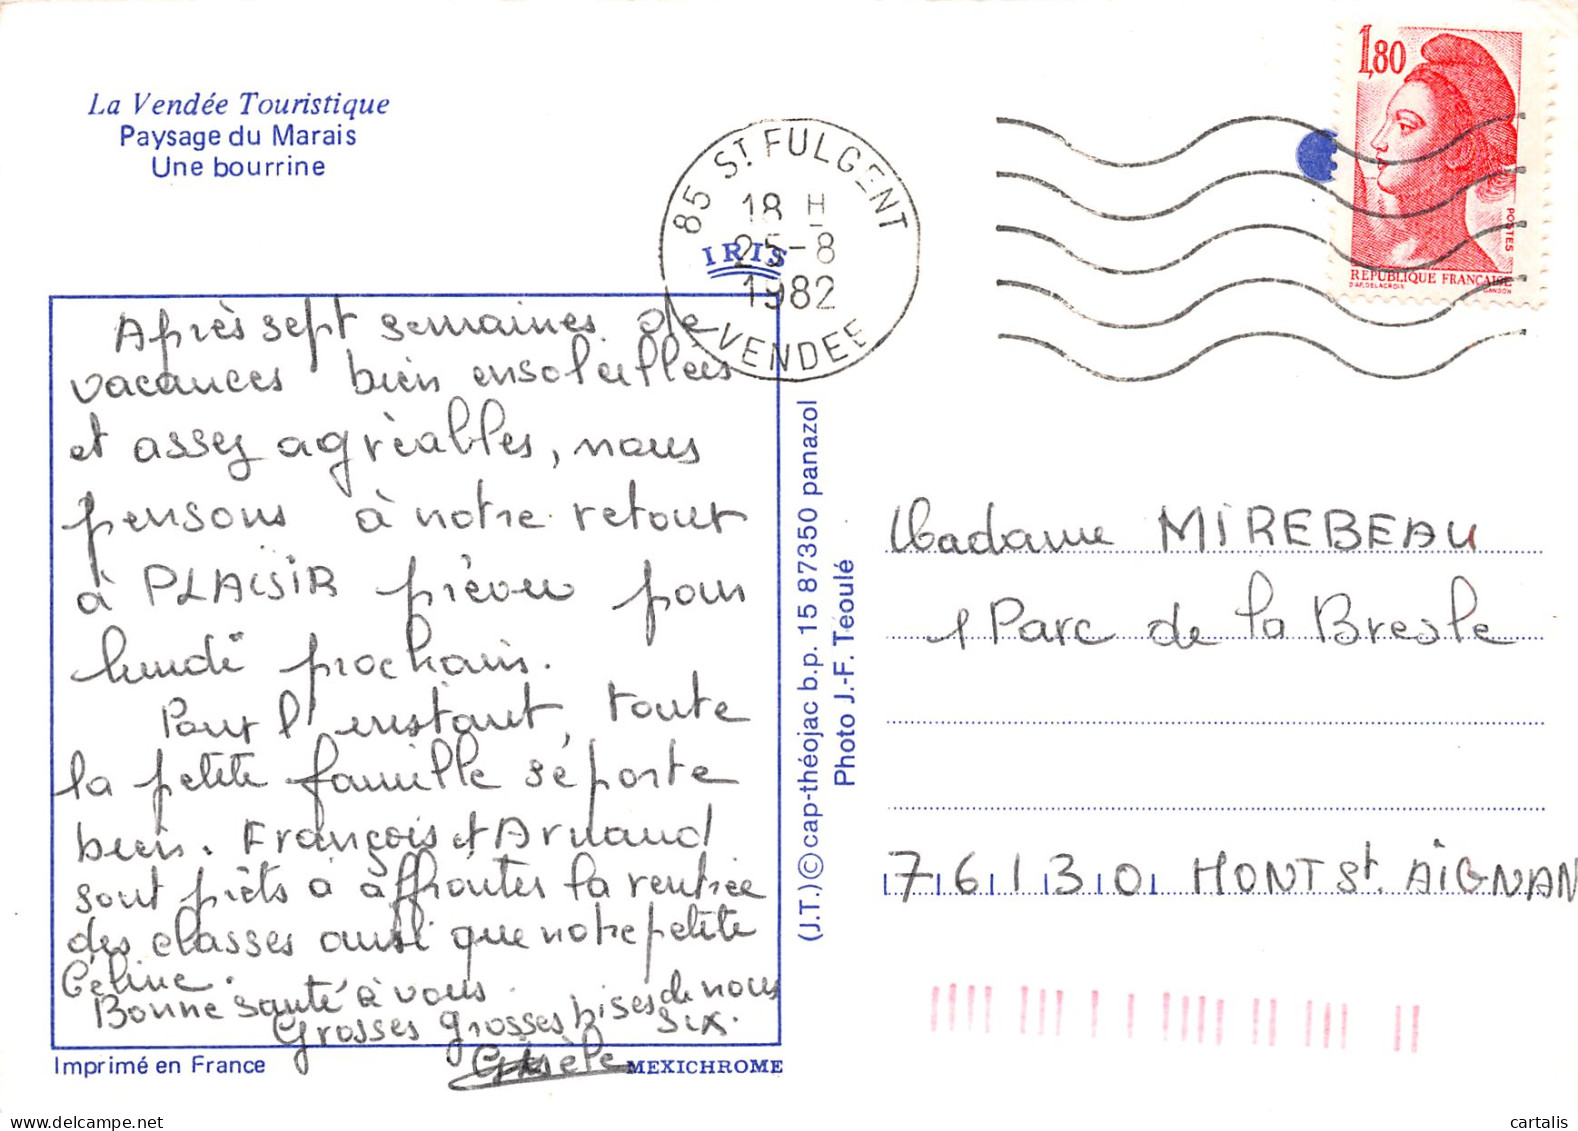 La Vendée Touristique
Paysage du Marais
Une bourrine
85 ST FULGENT
18 H
25-8
1982
VENDEE
IRIS
1,80
POSTES
REPUBLIQUE FRANÇAISE
D'AP. DELACROIX GANDON
Après sept semaines de
vacances bien ensoleillées
et assez agréables, nous
pensons à notre retour
à PLAISIR prévu pour
lundi prochain.
Pour l'instant, toute
la petite famille se porte
bien. François et Arnaud
sont prêts à affronter la rentrée
des classes ainsi que notre petite
Céline.
Bonne santé à vous.
Grosses grosses bises de nous
six.
Gisèle
Imprimé en France
MEXICHROME
(J.T.) © cap-théojac b.p. 15 87350 panazol
Photo J.-F. Téoulé
Madame MIREBEAU
1 Parc de la Bresle
76130 MONT St. AIGNAN
cartalis